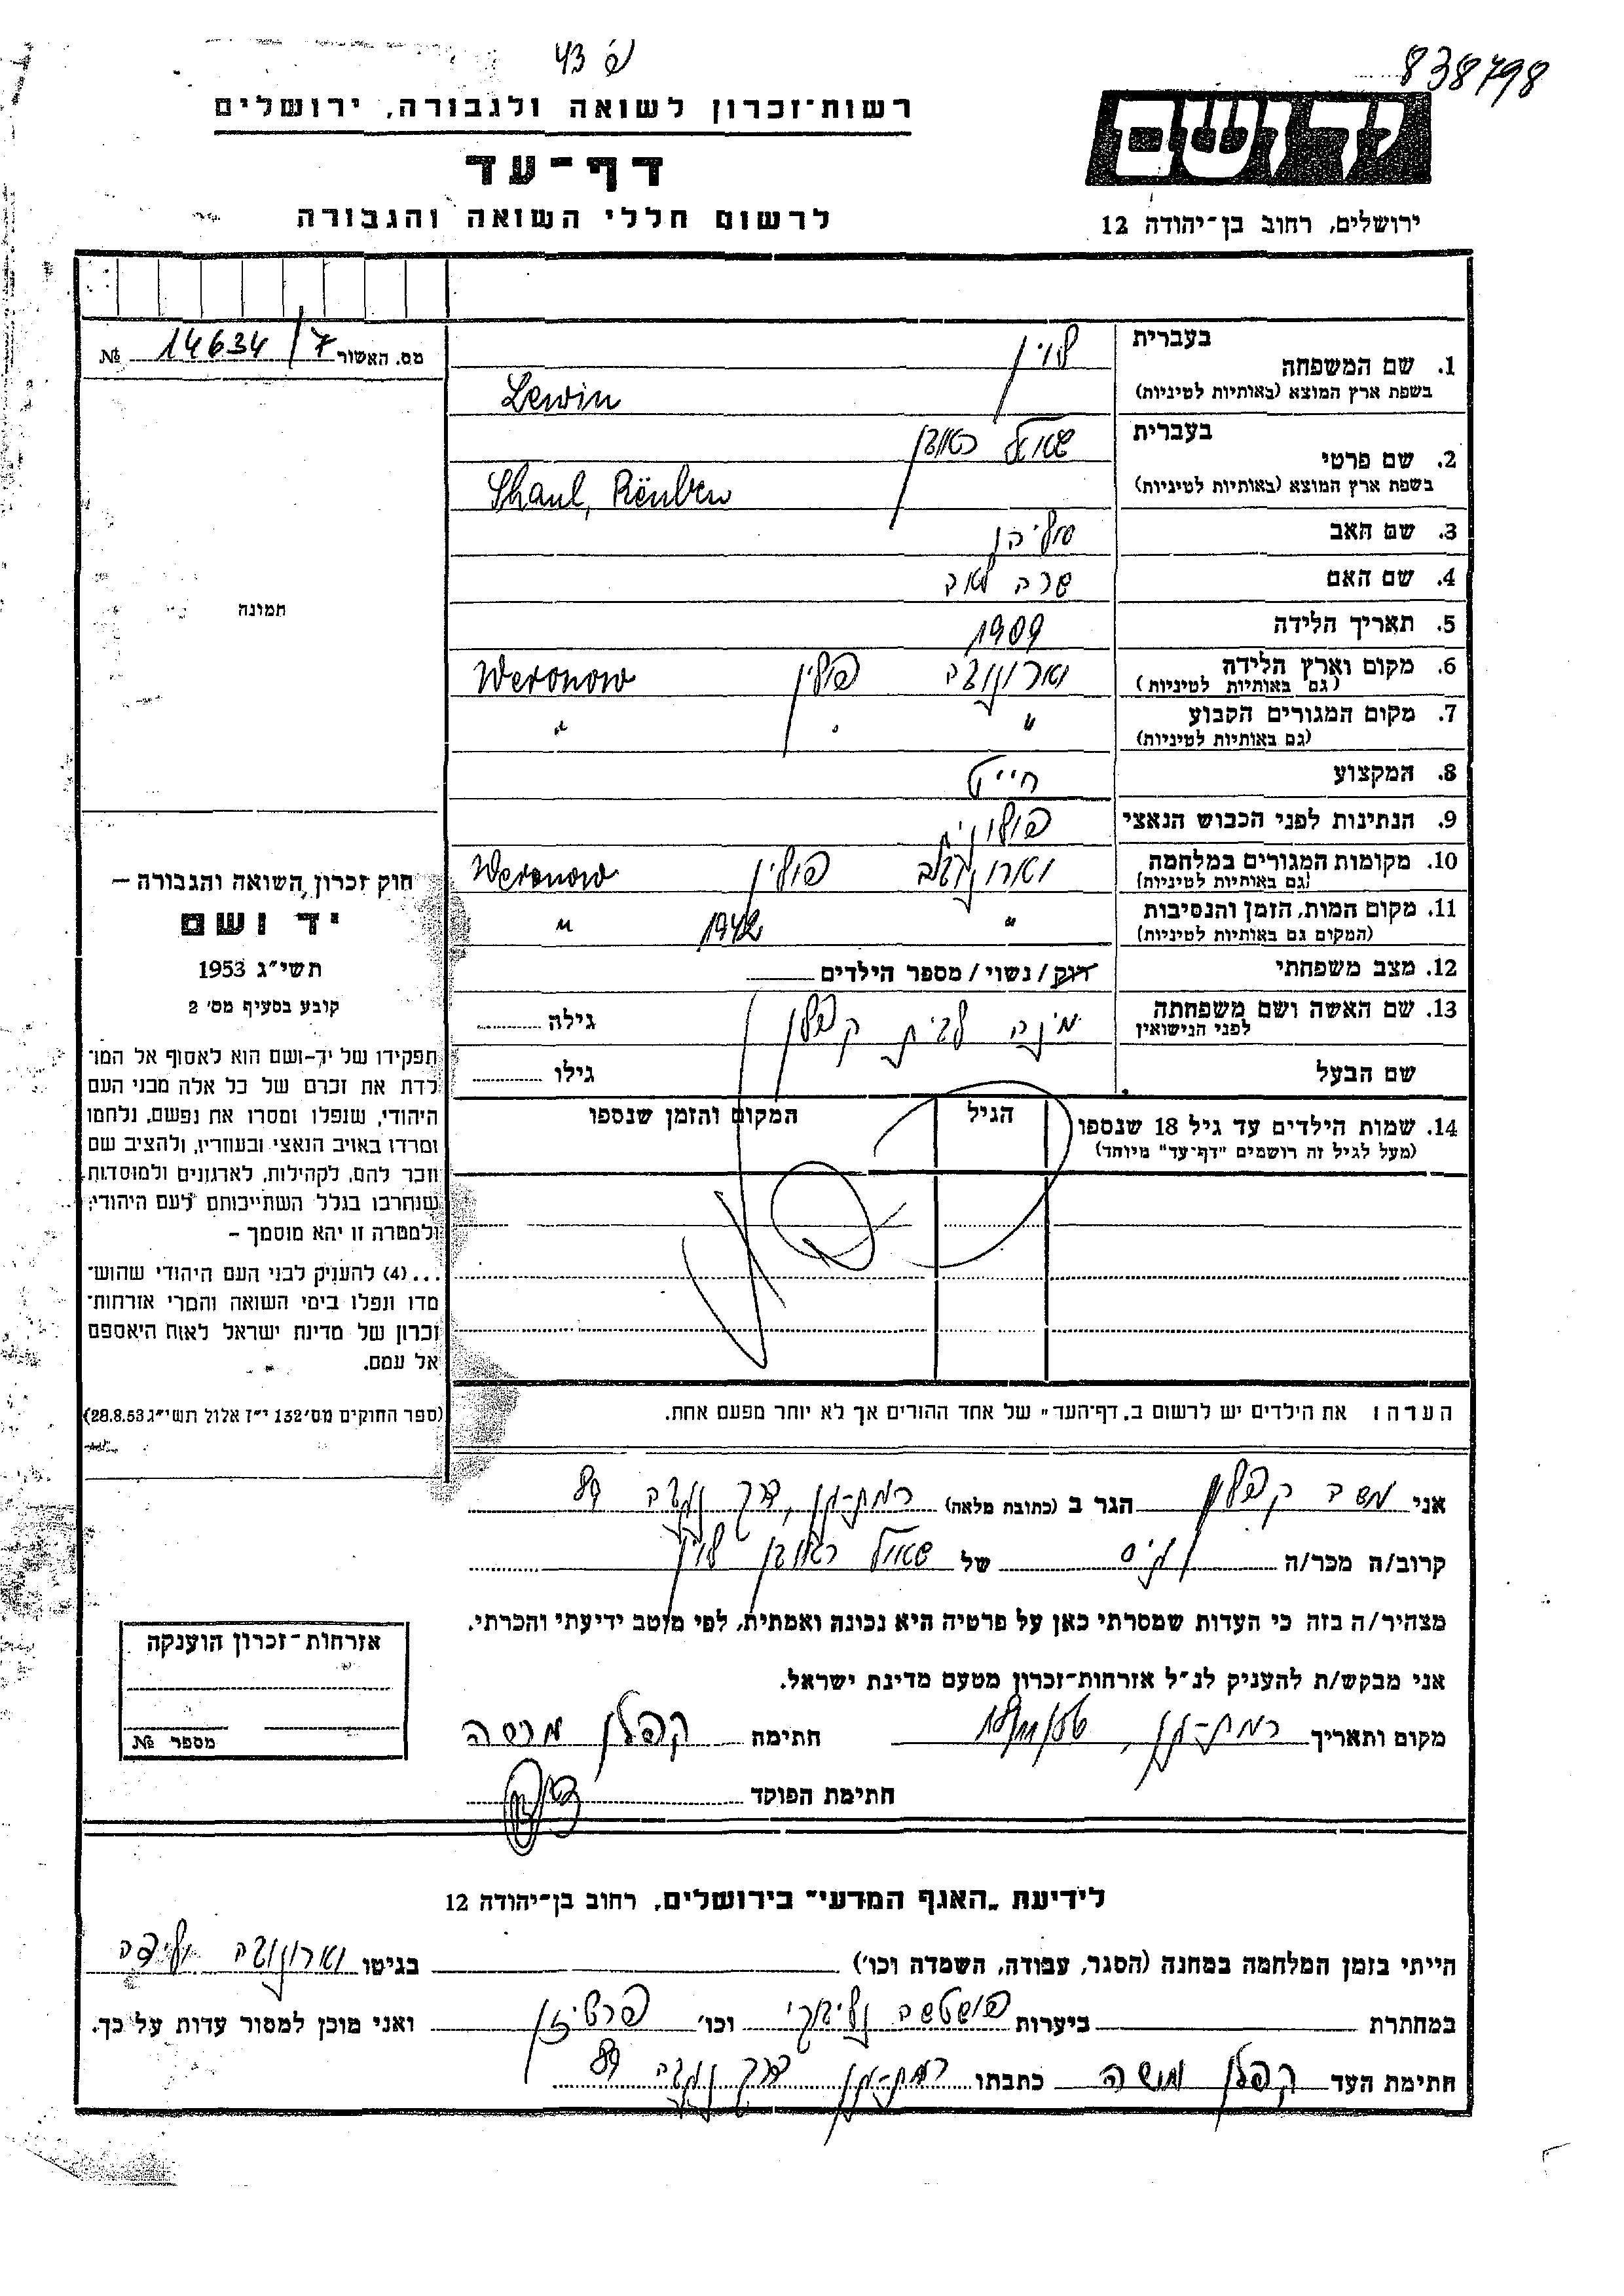 43
838798
רשות־זכרון לשואה ולגבורה, ירושלים
יד ושם
דף־עד
לרשום חללי השואה והגבורה
ירושלים, רחוב בן־יהודה 12
מס. האשור 14634/7 №
בעברית לוין
1. שם המשפחה
בשפת ארץ המוצא (באותיות לטיניות) Lewin
בעברית שאול ראובן
2. שם פרטי
בשפת ארץ המוצא (באותיות לטיניות) Shaul, Reuben
3. שם האב
4. שם האם שרה לאה
5. תאריך הלידה 1909
6. מקום וארץ הלידה וארונובה פולין Weronow
(גם באותיות לטיניות)
7. מקום המגורים הקבוע " " "
(גם באותיות לטיניות)
8. המקצוע חייט
9. הנתינות לפני הכבוש הנאצי פולונית
10. מקומות המגורים במלחמה וארונובה פולין Weronow
(גם באותיות לטיניות)
11. מקום המות, הזמן והנסיבות " 1942 "
(המקום גם באותיות לטיניות)
12. מצב משפחתי רווק / נשוי / מספר הילדים
13. שם האשה ושם משפחתה מינה לבית קפלן גילה
לפני הנישואין
שם הבעל גילו
14. שמות הילדים עד גיל 18 שנספו הגיל המקום והזמן שנספו
(מעל לגיל זה רושמים "דף־עד" מיוחד)
תמונה
חוק זכרון השואה והגבורה –
יד ושם
תשי"ג 1953
קובע בסעיף מס' 2
תפקידו של יד-ושם הוא לאסוף אל המו־
לדת את זכרם של כל אלה מבני העם
היהודי, שנפלו ומסרו את נפשם, נלחמו
ומרדו באויב הנאצי ובעוזריו, ולהציב שם
וזכר להם, לקהילות, לארגונים ולמוסדות
שנחרבו בגלל השתייכותם לעם היהודי;
ולמטרה זו יהא מוסמך –
...(4) להעניק לבני העם היהודי שהוש־
מדו ונפלו בימי השואה והמרי אזרחות־
זכרון של מדינת ישראל לאות היאספם
אל עמם.
(ספר החוקים מס' 132 י"ז אלול תשי"ג 28.8.53)
הערה: את הילדים יש לרשום ב„דף־העד" של אחד ההורים אך לא יותר מפעם אחת.
אני משה קפלן הגר ב (כתובת מלאה) רמת-גן, דרך נגבה 89
קרוב/ה מכר/ה גיס של שאול ראובן לוין
מצהיר/ה בזה כי העדות שמסרתי כאן על פרטיה היא נכונה ואמתית, לפי מיטב ידיעתי והכרתי.
אני מבקש/ת להעניק לנ"ל אזרחות־זכרון מטעם מדינת ישראל.
מקום ותאריך רמת-גן, חתימה קפלן משה
חתימת הפוקד
אזרחות־זכרון הוענקה
מספר №
לידיעת „האגף המדעי" בירושלים, רחוב בן־יהודה 12
הייתי בזמן המלחמה במחנה (הסגר, עבודה, השמדה וכו') בגיטו וארונובה ולידה
במחתרת ביערות וכו' פרטיזן ואני מוכן למסור עדות על כך.
חתימת העד קפלן משה כתבתו רמת-גן דרך נגבה 89